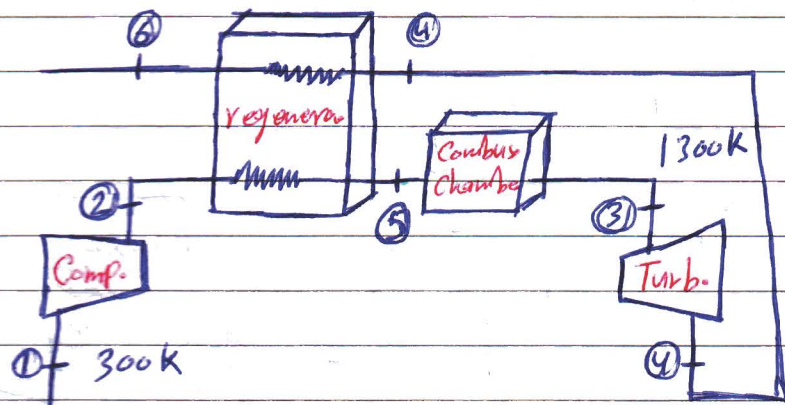 ⑥
④
regenera.
Combus
Chambe
1300K
②
⑤
③
Comp.
Turb.
① 300K
④